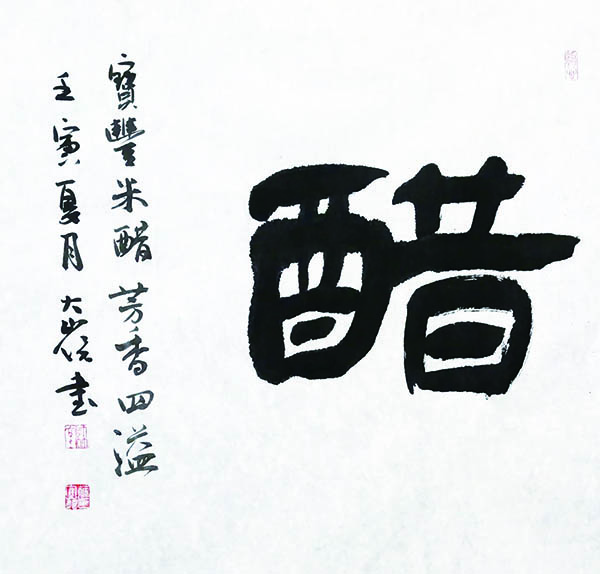 醋
寶豐米醋芳香四溢
壬寅夏月大岩书